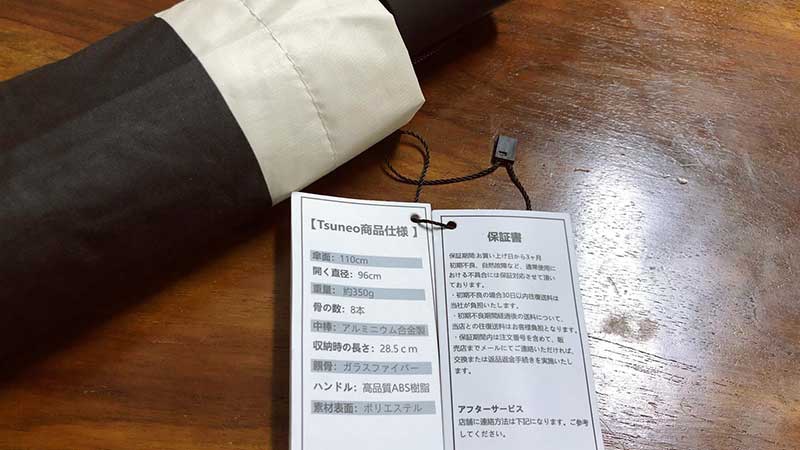 【Tsuneo商品仕様 】
傘面：110cm
開く直径：96cm
重量：約350g
骨の数：8本
中棒：アルミニウム合金製
収納時の長さ：28.5ｃｍ
親骨：ガラスファイバー
ハンドル：高品質ABS樹脂
素材表面：ポリエステル
保証書
保証期間:お買い上げ日から3ヶ月
初期不良、自然故障など、通常使用に
おける不具合には保証対応させて頂い
ております。
・初期不良の場合30日以内往復送料は
当社が負担いたします。
・初期不良期間経過後の送料について、
当店との往復送料はお客様負担となります。
・保証期間内は注文番号を含めて、販
売店までメールにてご連絡いただければ、
交換または返品返金手続きを実施いたし
ます。
アフターサービス
店舗に連絡方法は下記になります。ご参考
してください。